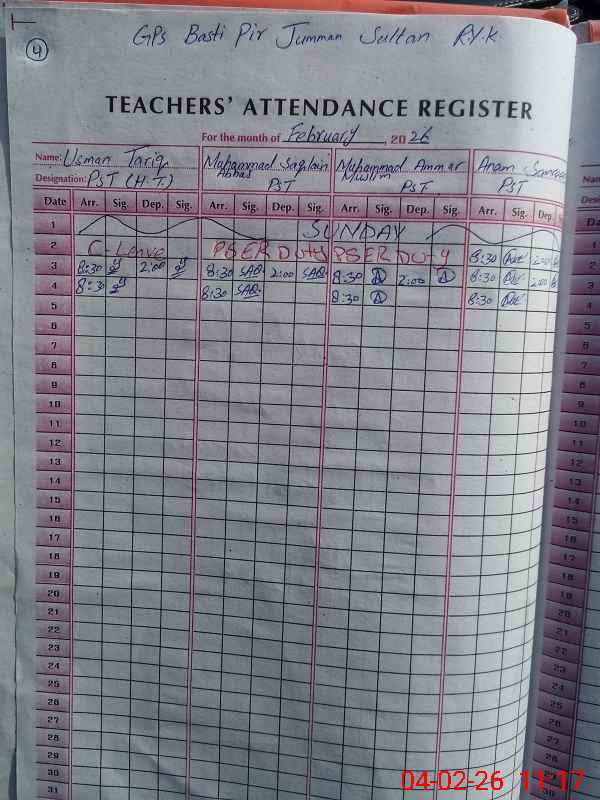 4
GPS Basti Pir Jumman Sultan R.Y.K.
TEACHERS' ATTENDANCE REGISTER
For the month of February, 2026
Name: Usman Tariq Muhammad Saqlain Abbas Muhammad Ammar Muslim Anam
Designation: PST (H.T.) PST PST PST
Date Arr. Sig. Dep. Sig. Arr. Sig. Dep. Sig. Arr. Sig. Dep. Sig. Arr. Sig. Dep. Sig.
1 SUNDAY
2 C-Leave PSER DUTY PSER DUTY 8:30 2:00
3 8:30 2:00 8:30 SAQ 2:00 SAQ 8:30 A 2:00 A 8:30 2:00
4 8:30 8:30 SAQ 8:30 A 8:30
5
6
7
8
9
10
11
12
13
14
15
16
17
18
19
20
21
22
23
24
25
26
27
28
29
30
31
04-02-26 11:17